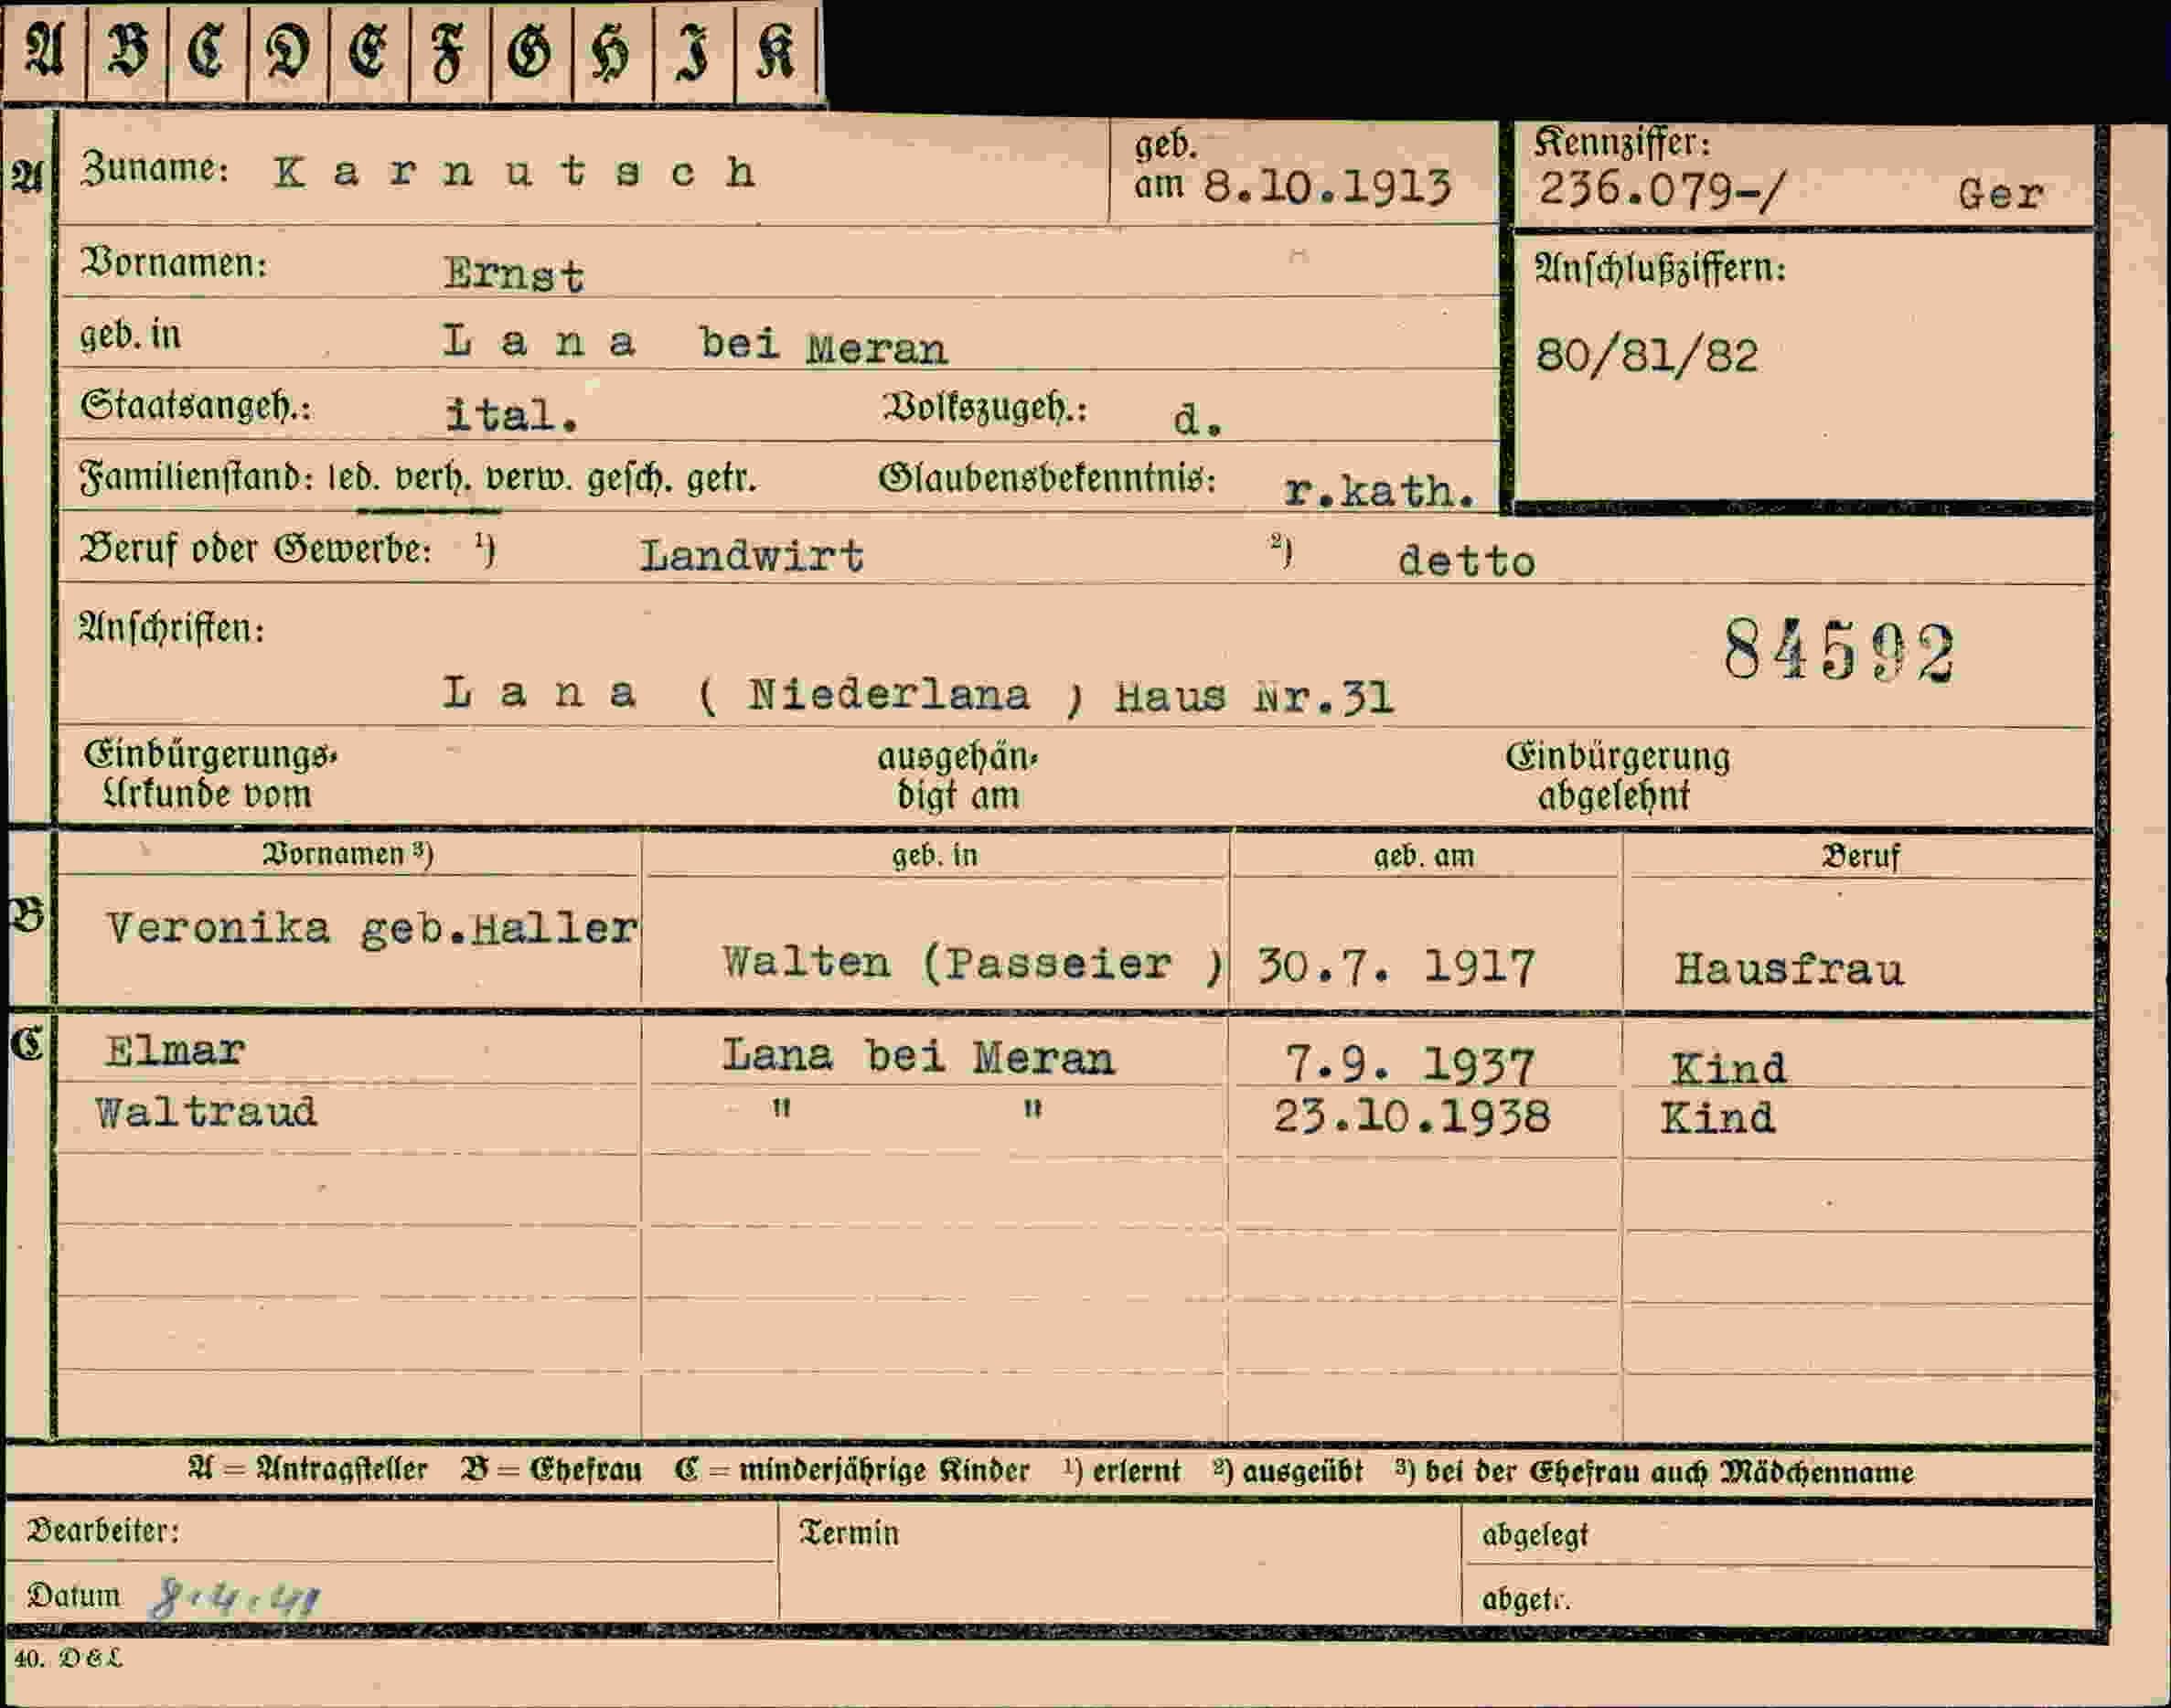 A B C D E F G H I K
A Zuname: Karnutsch geb. am 8.10.1913 Kennziffer: 236.079-/ Ger
Vornamen: Ernst Anschlußziffern:
geb. in Lana bei Meran 80/81/82
Staatsangeh.: ital. Volkszugeh.: d.
Familienstand: led. verh. verw. gesch. getr. Glaubensbekenntnis: r.kath.
Beruf oder Gewerbe: ¹) Landwirt ²) detto
Anschriften: 84592
Lana ( Niederlana ) Haus Nr.31
Einbürgerungs- ausgehän- Einbürgerung
Urkunde vom digt am abgelehnt
Vornamen ³) geb. in geb. am Beruf
B Veronika geb.Haller Walten (Passeier ) 30.7. 1917 Hausfrau
C Elmar Lana bei Meran 7.9. 1937 Kind
Waltraud " " 23.10.1938 Kind
A = Antragsteller B = Ehefrau C = minderjährige Kinder ¹) erlernt ²) ausgeübt ³) bei der Ehefrau auch Mädchenname
Bearbeiter: Termin abgelegt
Datum 8.4.41 abgetr.
40. D&L